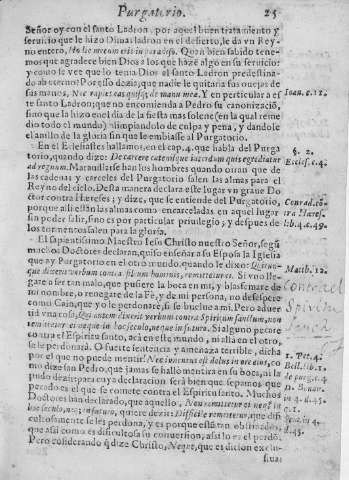 Purgatorio. 25
Señor oy con el santo Ladron, por aquel buen tratamiento y
seruicio que le hizo Dimas ladron en el desierto, le da vn Rey-
no entero, Hodie mecum eris in paradiso. Quan bien sabido tene-
mos que agradece bien Dios a los que haze algo en su seruicio:
y como le vee que lo temia Dios al santo Ladron predestina-
do ab eterno? Por esso dezia, que nadie le quitaria sus ouejas de
sus manos, Nec rapiet eas quisq; de manu mea. Y en particular a es-
te santo Ladron; que no encomienda a Pedro su canonizació,
sino que la hizo en el dia de la fiesta mas solene (en la qual reme
dio todo el mundo) limpiandolo de culpa y pena, y dandole
el anillo de la gloria sin que le embiasse al Purgatorio.
En el Eclesiastes hallamos, en el cap. 4. que habla del Purga
torio, quando dize: De carcere catenisque interdum quis egrediatur
ad regnum. Marauillarse han los hombres quando oiran que de
las cadenas y carceles del Purgatorio salen las almas para el
Reyno del cielo. Desta manera declara este lugar vn graue Do-
ctor contra Hereses; y dize, que se entiende del Purgatorio,
porque alli están las almas como encarceladas en aquel lugar
sin poder salir, sino es por particular priuilegio; y despues de
los tormentos salen para la gloria.
El sapientissimo Maestro Iesu Christo nuestro Señor, segú
muchos Doctores declaran, quiso enseñar a su Esposa la Iglesia
que ay Purgatorio en el otro mundo, quando le dixo: Quicun-
que dixerit verbum contra filium hominis, remittetur ei. Si vno lle-
gare a ser tan malo, que pusiere la boca en mi, y blasfemare de
mi nombre, o renegare de la Fè, y de mi persona, no desespere
como Cain, que yo le perdonarè, si se buelue a mi. Pero aduer
tid vna cosa, Qui autem dixerit verbum contra Spiritum sanctum, non
remittetur ei neque in hoc seculo, neque in futuro. Si alguno pecare
contra el Espiritu santo, acà en este mundo, ni allà en el otro,
se le perdonarà. O fuerte sentencia y amenaza terrible, dicha
por el que no puede mentir! Nec inuentus est dolus in ore eius, co
mo dize san Pedro, que jamas se hallò mentira en su boca, ni la
pudo dezir: para cuya declaracion serà bien que sepamos que
pecado es el que se comete contra el Espiritu santo. Muchos
Doctores han declarado, que aquello, Non remittetur ei neque in
hoc seculo, neq; in futuro, quiere dezir: Difficile remittetur, que difi
cultosamente se les perdona, y es porque estàn tan obstinados,
que assi como es dificultosa su conuersion, assi lo es el perdó.
Pero cósiderando q̃ dize Christo, Neque, que es dicion exclu-
siua:
Ioan. c. 12.
§. 2.
Ecclesi. c. 4.
Conrad. có-
tra Hæres.
lib. 4. c. 49.
Matth. 12.
1. Pet. 4.